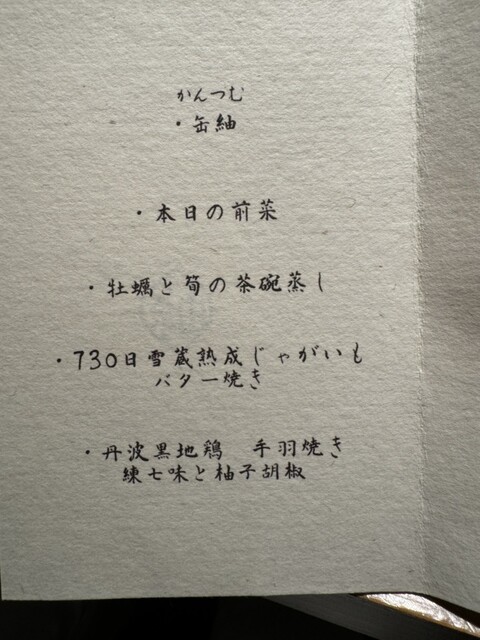 かんつむ
・缶紬
・本日の前菜
・牡蠣と筍の茶碗蒸し
・730日雪蔵熟成じゃがいも
バター焼き
・丹波黒地鶏　手羽焼き
練七味と柚子胡椒